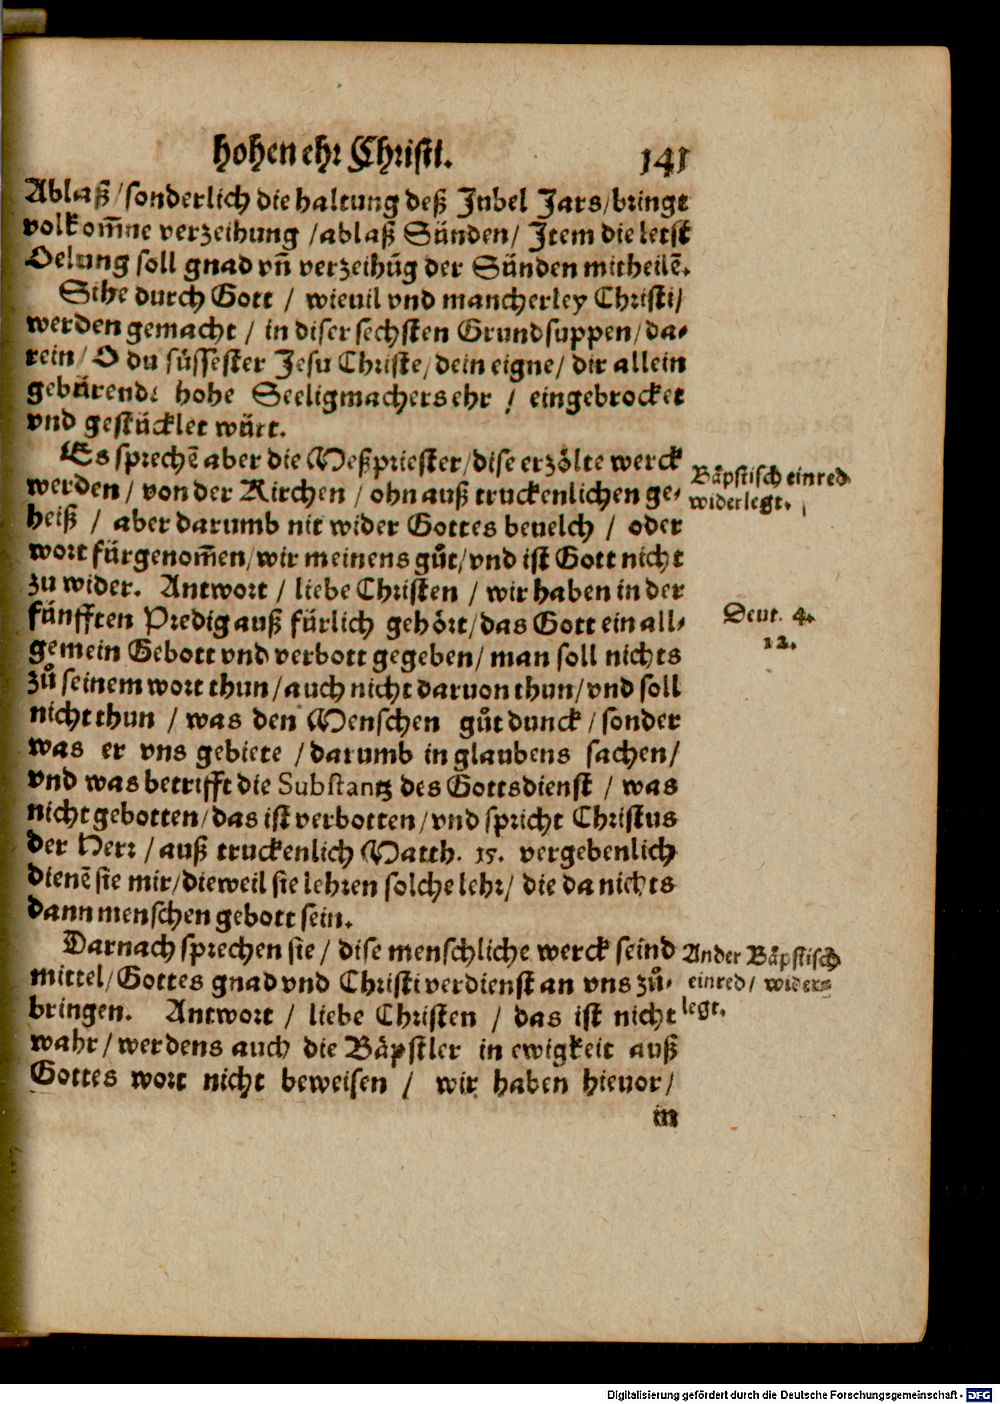 hohen ehr Christi. 141
Ablaß/ sonderlich die haltung deß Jubel Jars/ bringt
volkom̃ne verzeihung / ablaß Sünden/ Item die letst
Oelung soll gnad vñ verzeihũg der Sünden mitheilẽ.
Sihe durch Gott / wieuil vnd mancherley Christi/
werden gemacht / in diser sechsten Grundsuppen/ da-
rein/ O du süssester Jesu Christe/ dein eigne/ dir allein
gebürende hohe Seeligmachers ehr / eingebrocket
vnd gestücklet würt.
Es sprechẽ aber die Meßpriester/ dise erzölte werck
werden / von der Kirchen / ohn außtruckenlichen ge-
heiß / aber darumb nit wider Gottes beuelch / oder
wort fürgenom̃en/ wir meinens gůt/ vnd ist Gott nicht
zu wider. Antwort / liebe Christen / wir haben in der
fünfften Predig außfürlich gehört/ das Gott ein all-
gemein Gebott vnd verbott gegeben/ man soll nichts
zů seinem wort thun/ auch nicht daruon thun/ vnd soll
nicht thun / was den Menschen gůt dunck / sonder
was er vns gebiete / darumb in glaubens sachen/
vnd was betrifft die Substantz des Gottsdienst / was
nicht gebotten/ das ist verbotten/ vnd spricht Christus
der Herr / außtruckenlich Matth. 15. vergebenlich
dienẽ sie mir/ dieweil sie lehren solche lehr/ die da nichts
dann menschen gebott sein.
Darnach sprechen sie / dise menschliche werck seind
mittel/ Gottes gnad vnd Christi verdienst an vns zů-
bringen. Antwort / liebe Christen / das ist nicht
wahr/ werdens auch die Bäpstler in ewigkeit auß
Gottes wort nicht beweisen / wir haben hieuor/
in
Bäpstisch einred
widerlegt.
Deut. 4.
12.
Ander Bäpstisch
einred/ wider-
legt.
Digitalisierung gefördert durch die Deutsche Forschungsgemeinschaft - DFG